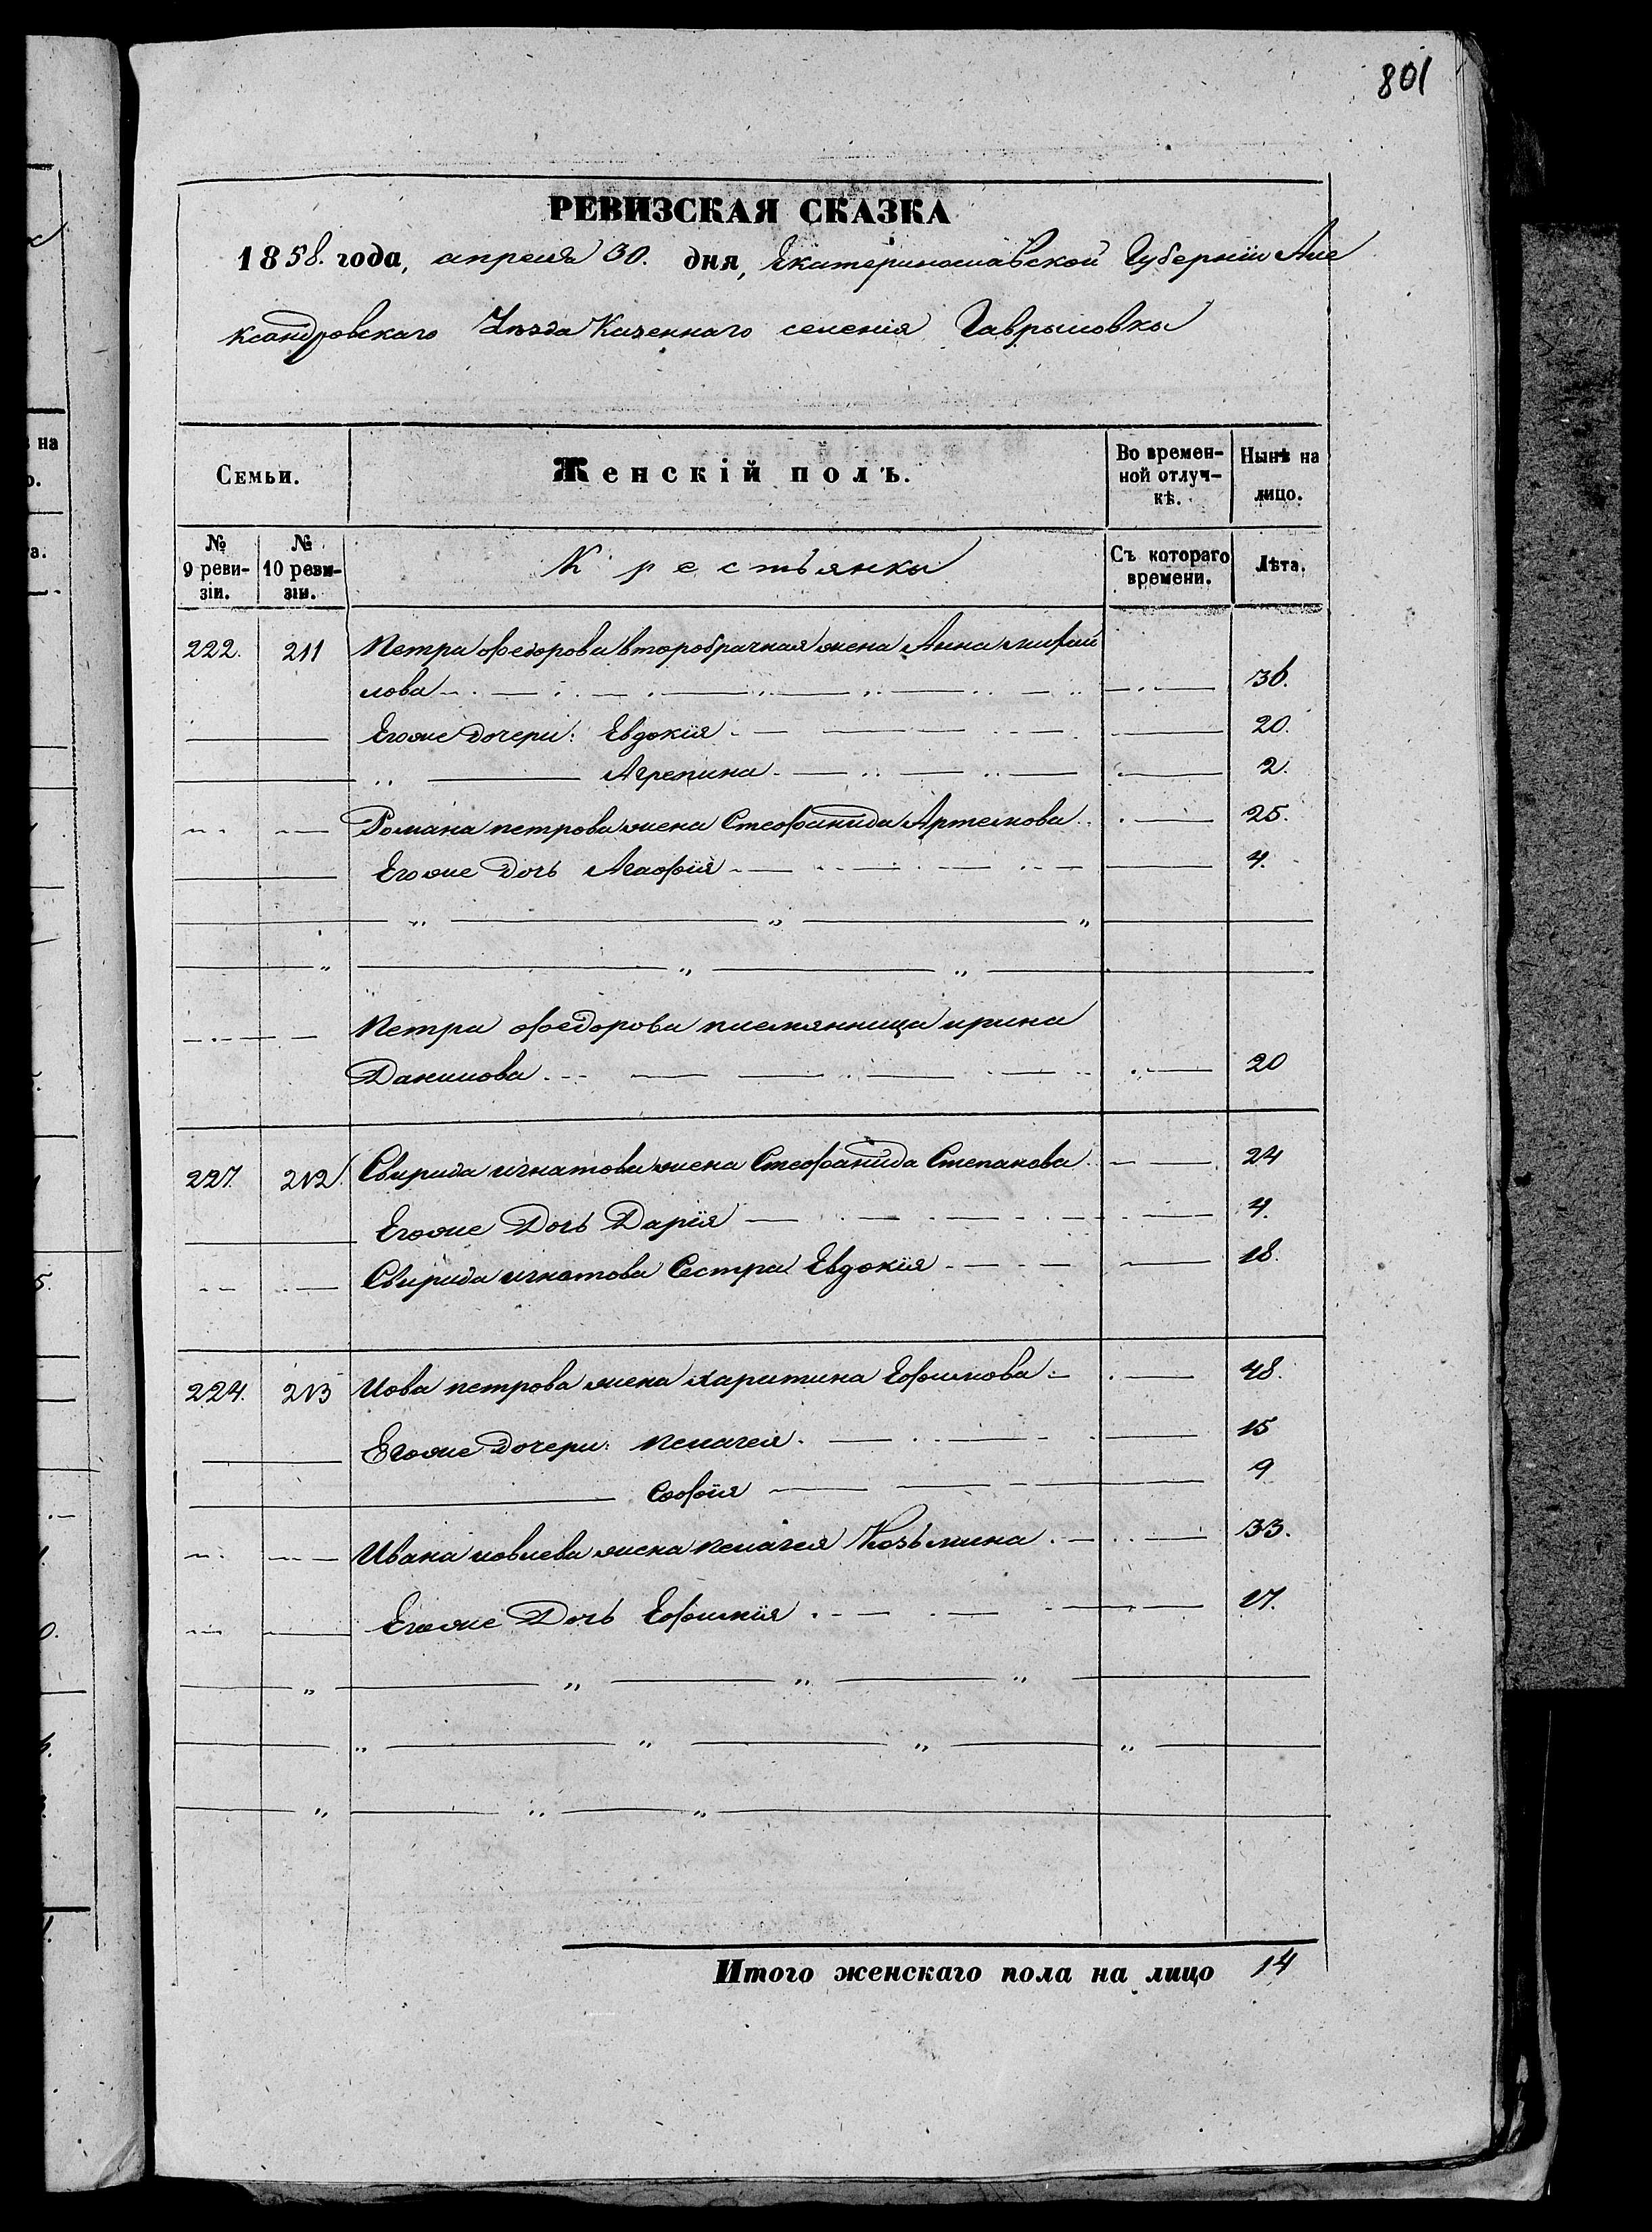 801
РЕВИЗСКАЯ СКАЗКА
1858. года, апреля 30. дня, Екатеринославской Губерніи Але
ксандровскаго Уѣзда Казеннаго селенія Гаврыловки
Семьи. Женскій полъ. Во времен- Нынѣ на
ной отлуч- лицо.
кѣ.
№ № Крестьянки Съ котораго Лѣта.
9 реви- 10 реви- времени.
зіи. зіи.
222. 211 Петра Федорова второбрачная жена Анна михай
лова 36.
Егоже дочери: Евдокія 20.
Агрепина 2.
Романа петрова жена Стефанида Артемова 25.
Егоже Дочь Агафія 4.
Петра Федорова племянница ирина
Данилова 20
227. 212. Свирида игнатова жена Стефанида Степанова 24
Егоже Дочь Дарія 4.
Свирида игнатова Сестра Евдокія 18.
224. 213 Иова петрова жена харитина Ефимова 48.
Егоже дочери: пелагея 15
Софія 9
Ивана иовлева жена пелагея Козьмина 33.
Егоже Дочь Ефимія 17.
Итого женскаго пола на лицо 14